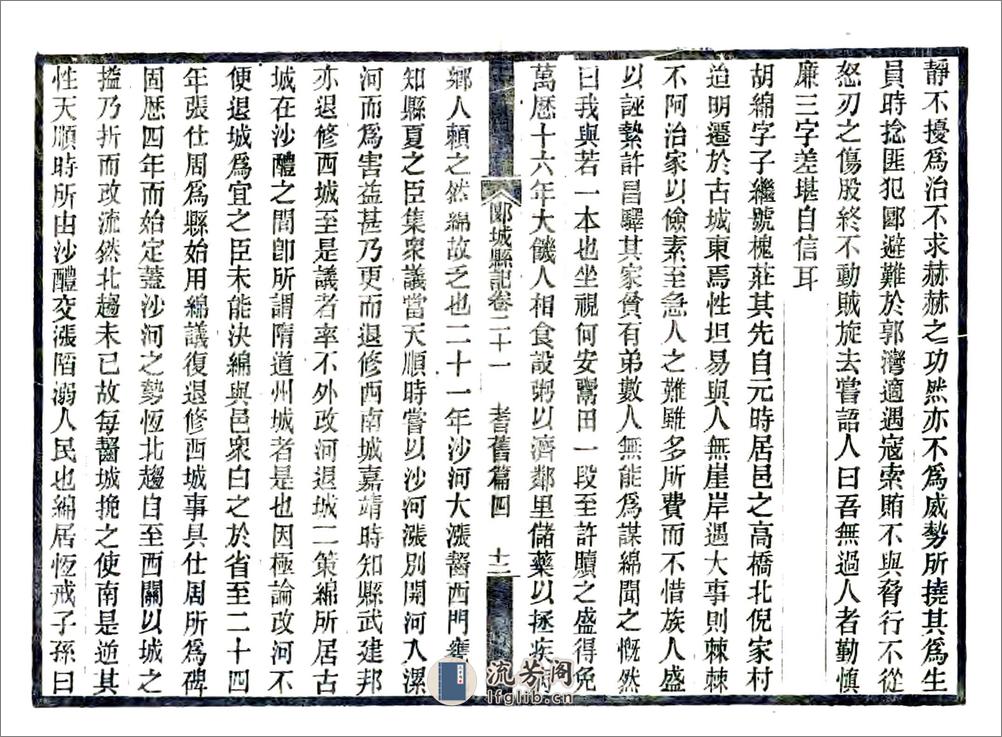 靜不擾爲治不求赫赫之功然亦不爲威勢所撓其爲生
員時捻匪犯郾避難於郭灣適遇寇索賄不與脅行不從
怒刃之傷股終不動賊旋去嘗語人曰吾無過人者勤愼
廉三字差堪自信耳
胡綿字子繼號槐莊其先自元時居邑之高橋北倪家村
迨明遷於古城東焉性坦易與人無崖岸遇大事則棘棘
不阿治家以儉素至急人之難雖多所費而不惜族人盛
以誣縶許昌驛其家貧有弟數人無能爲謀綿聞之慨然
曰我與若一本也坐視何安鬻田一段至許贖之盛得免
萬歷十六年大饑人相食設粥以濟鄰里儲藥以拯疾
郾城縣記卷二十一 耆舊篇四 十三
鄉人賴之然綿故乏也二十一年沙河大漲齧西門
知縣夏之臣集衆議當天順時嘗以沙河漲別開河入漯
河而爲害益甚乃更而退修西南城嘉靖時知縣武建邦
亦退修西城至是議者率不外改河退城二策綿所居古
城在沙醴之間卽所謂隋道州城者是也因極論改河不
便退城爲宜之臣未能決綿與邑衆白之於省至二十四
年張仕周爲縣始用綿議復退修西城事具仕周所爲碑
固歷四年而始定蓋沙河之勢恆北趨自至西關以城之
搕乃折而改流然北趨未已故每齧城挽之使南是逆其
性天順時所由沙醴交漲陷溺人民也綿居恆戒子孫曰
流芳閣
lfglib.cn